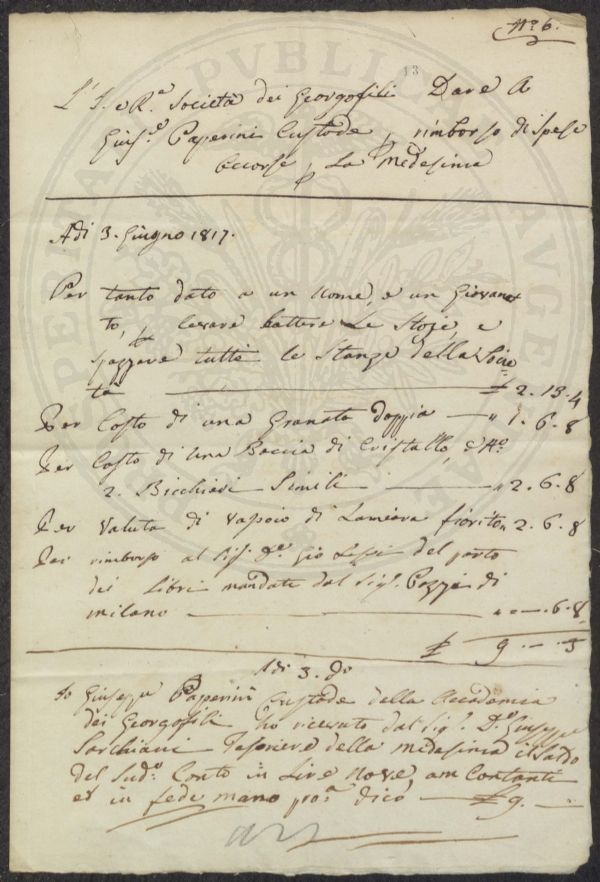 N.º 6.
13
L'I. e R.ª Società dei Georgofili Dare A
Gius.e Paperini Custode, rimborso di spese
occorse, La Medesima
Adi 3. Giugno 1817.
Per tanto dato a un Uomo, e un Giovanet
to, p levare battere Le Stoje, e
spazzare tutte le Stanze della Socie
tà £ 2. 13. 4
Per Costo di una Granata doppia " 1. 6. 8
Per Costo di una Boccia di Cristallo, e N.º
2. Bicchieri Simili " 2. 6. 8
Per Valuta di vassoio di Lamiera fiorito " 2. 6. 8
Per rimborso al Sig.r D.r Gio del porto
dei Libri mandati dal Sig.r Pozzi di
Milano " " 6. 8
£ 9. - . 5
Adi 3. do
Io Giuseppe Paperini Custode della Accademia
dei Georgofili ho ricevuto dal Sig.r D.r Giuseppe
Sarchiani Tesoriere della medesima il Saldo
del Sud.o Conto in Lire Nove Contanti
et in fede mano pro.a dico £ 9. -
PROSPERITATI PVBLICAE AVGENDAE